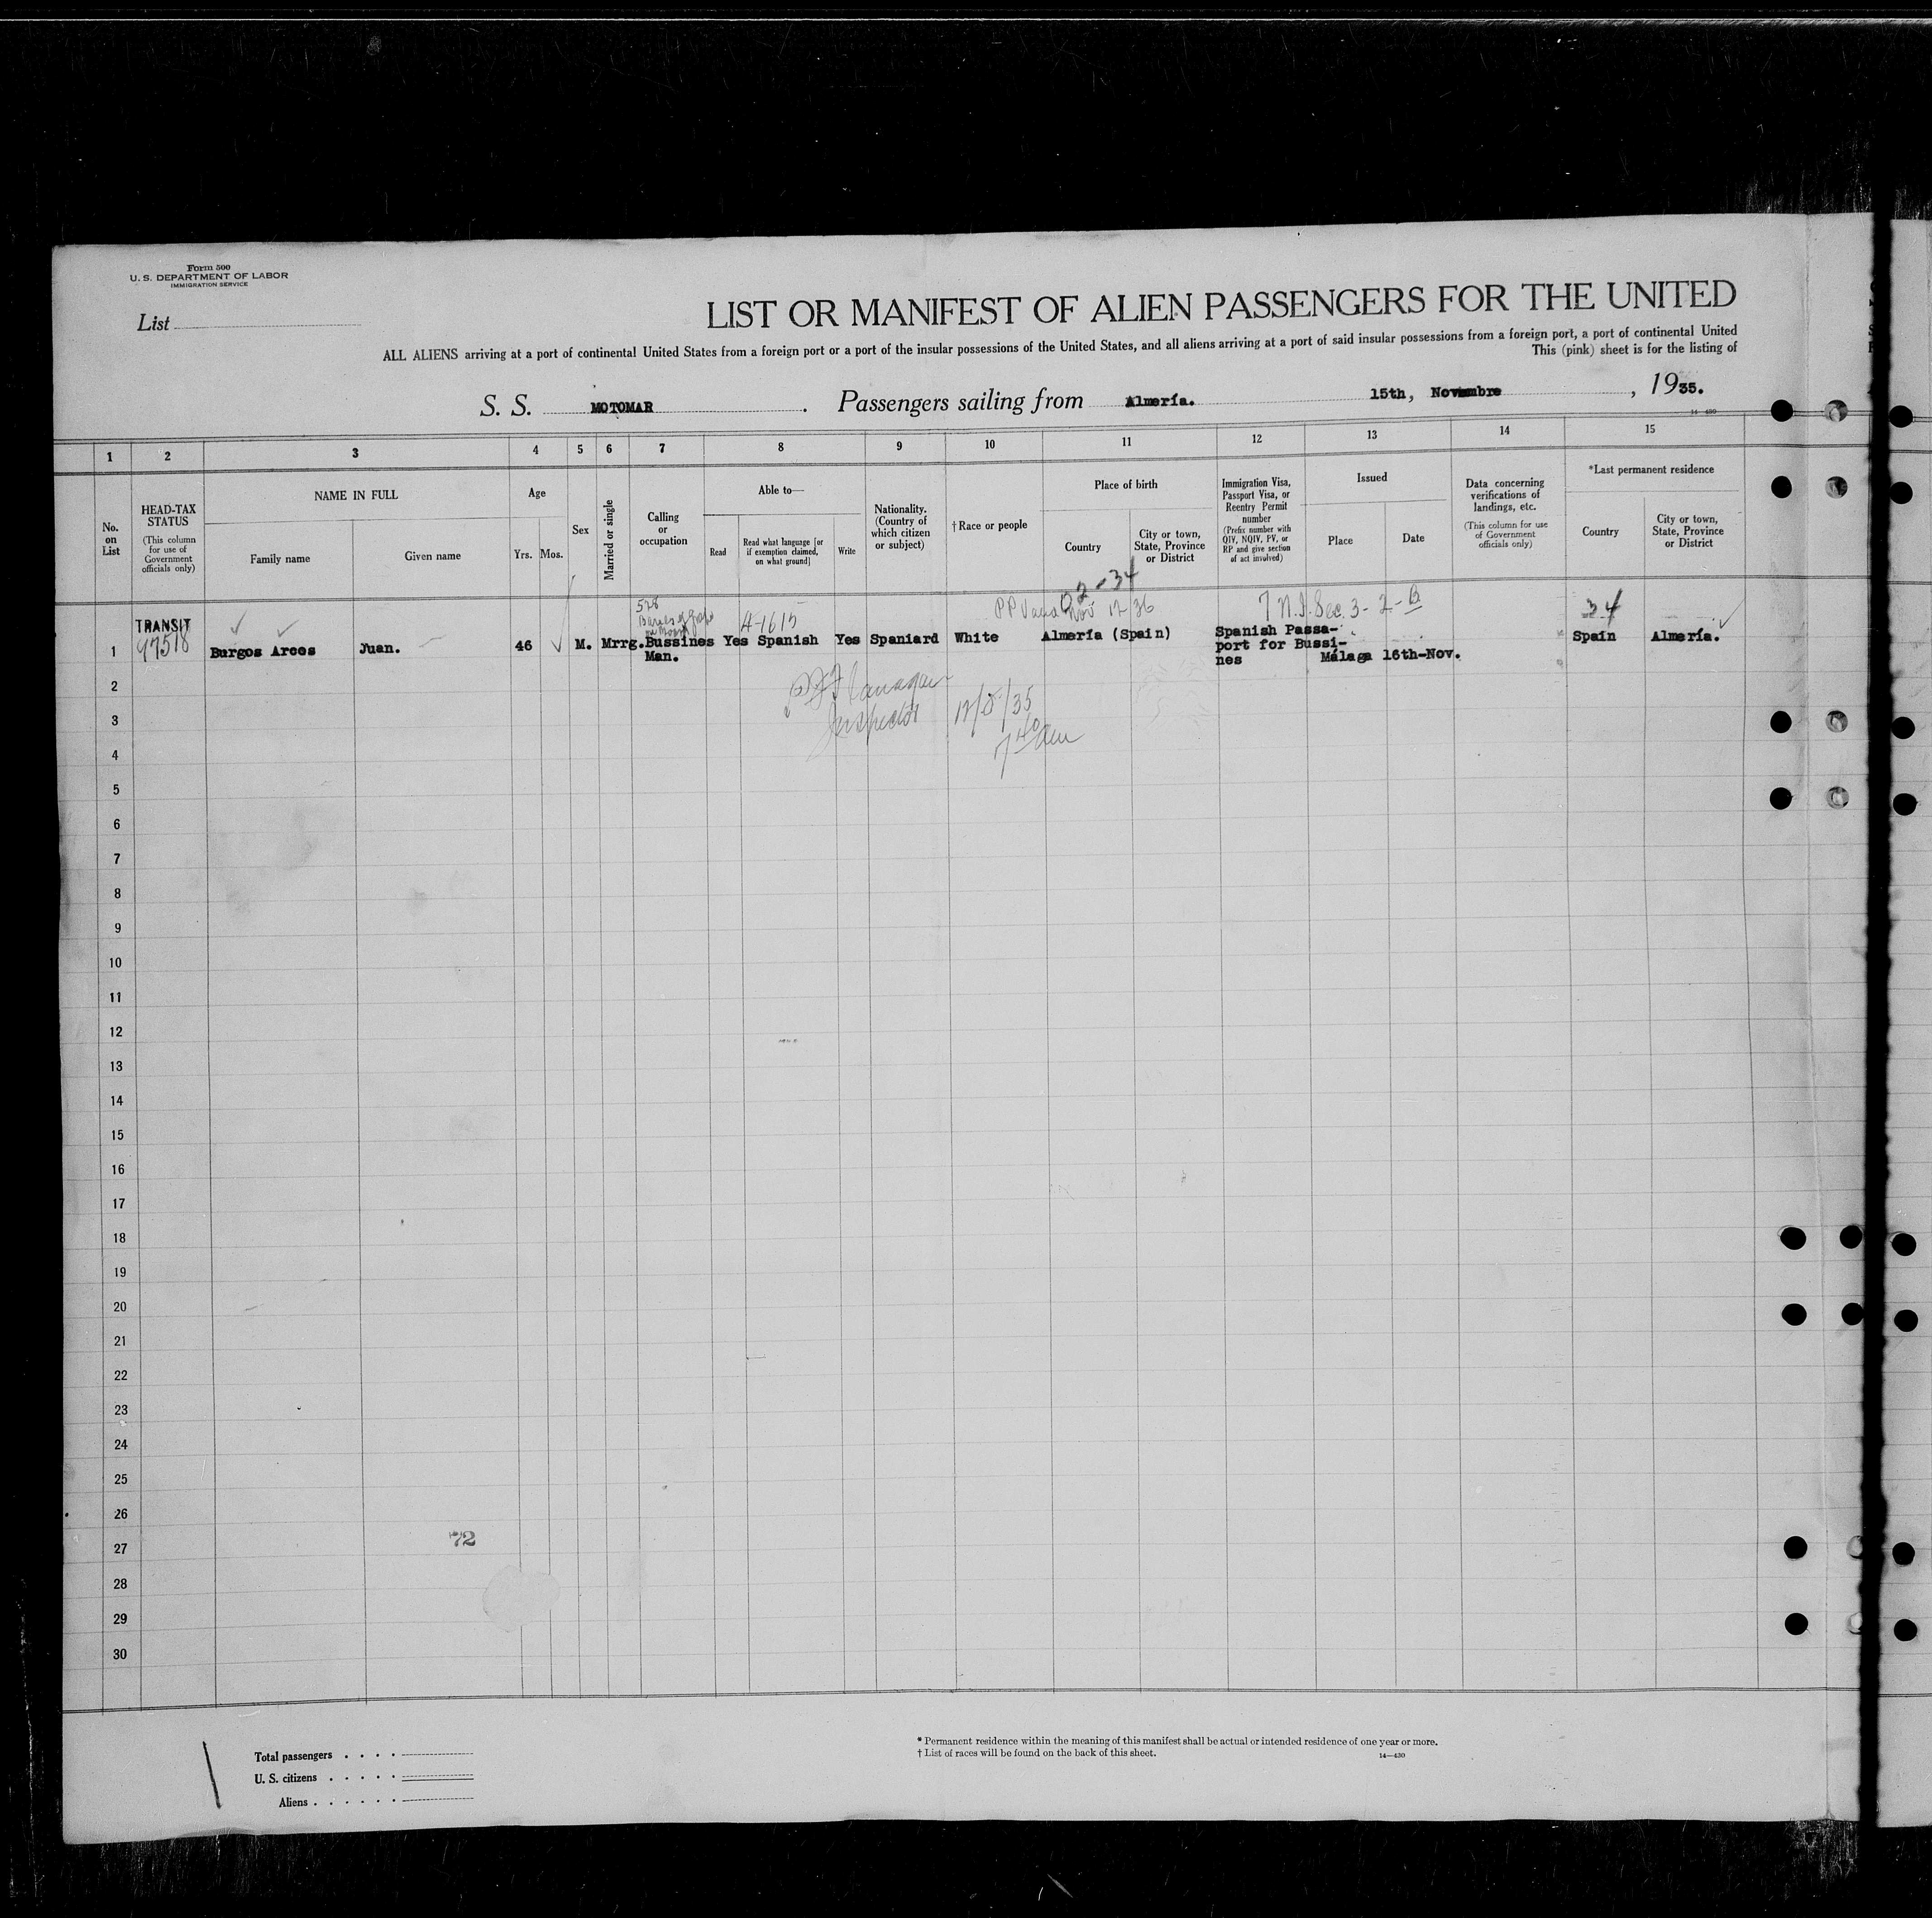 Form 500
U. S. DEPARTMENT OF LABOR
IMMIGRATION SERVICE
List
LIST OR MANIFEST OF ALIEN PASSENGERS FOR THE UNITED
ALL ALIENS arriving at a port of continental United States from a foreign port or a port of the insular possessions of the United States, and all aliens arriving at a port of said insular possessions from a foreign port, a port of continental United
This (pink) sheet is for the listing of
S. S. MOTOMAR. Passengers sailing from Almería. 15th, Novembre, 1935.
14—430
1 2 3 4 5 6 7 8 9 10 11 12 13 14 15
No. on List
HEAD-TAX STATUS
(This column for use of Government officials only)
NAME IN FULL
Family name
Given name
Age
Yrs. Mos.
Sex
Married or single
Calling or occupation
Able to—
Read
Read what language [or if exemption claimed, on what ground]
Write
Nationality. (Country of which citizen or subject)
†Race or people
Place of birth
Country
City or town, State, Province or District
Immigration Visa, Passport Visa, or Reentry Permit number
(Prefix number with QIV, NQIV, PV, or RP and give section of act involved)
Issued
Place
Date
Data concerning verifications of landings, etc.
(This column for use of Government officials only)
*Last permanent residence
Country
City or town, State, Province or District
02-34
528
4-1615
PP Nov 12 36
7 N.I. Sec. 3-2-B
34
TRANSIT
97518
1 Burgos Arcos Juan. 46 M. Mrrg. Bussines Yes Spanish Yes Spaniard White Almería (Spain) Spanish Passa- Spain Almería.
Man. port for Bussi-
nes Málaga 16th-Nov.
Flanagan
Inspector 12/5/35
7 40 am
2
3
4
5
6
7
8
9
10
11
12
13
14
15
16
17
18
19
20
21
22
23
24
25
26
27
28
29
30
72
Total passengers
U. S. citizens
Aliens
* Permanent residence within the meaning of this manifest shall be actual or intended residence of one year or more.
† List of races will be found on the back of this sheet.
14—430